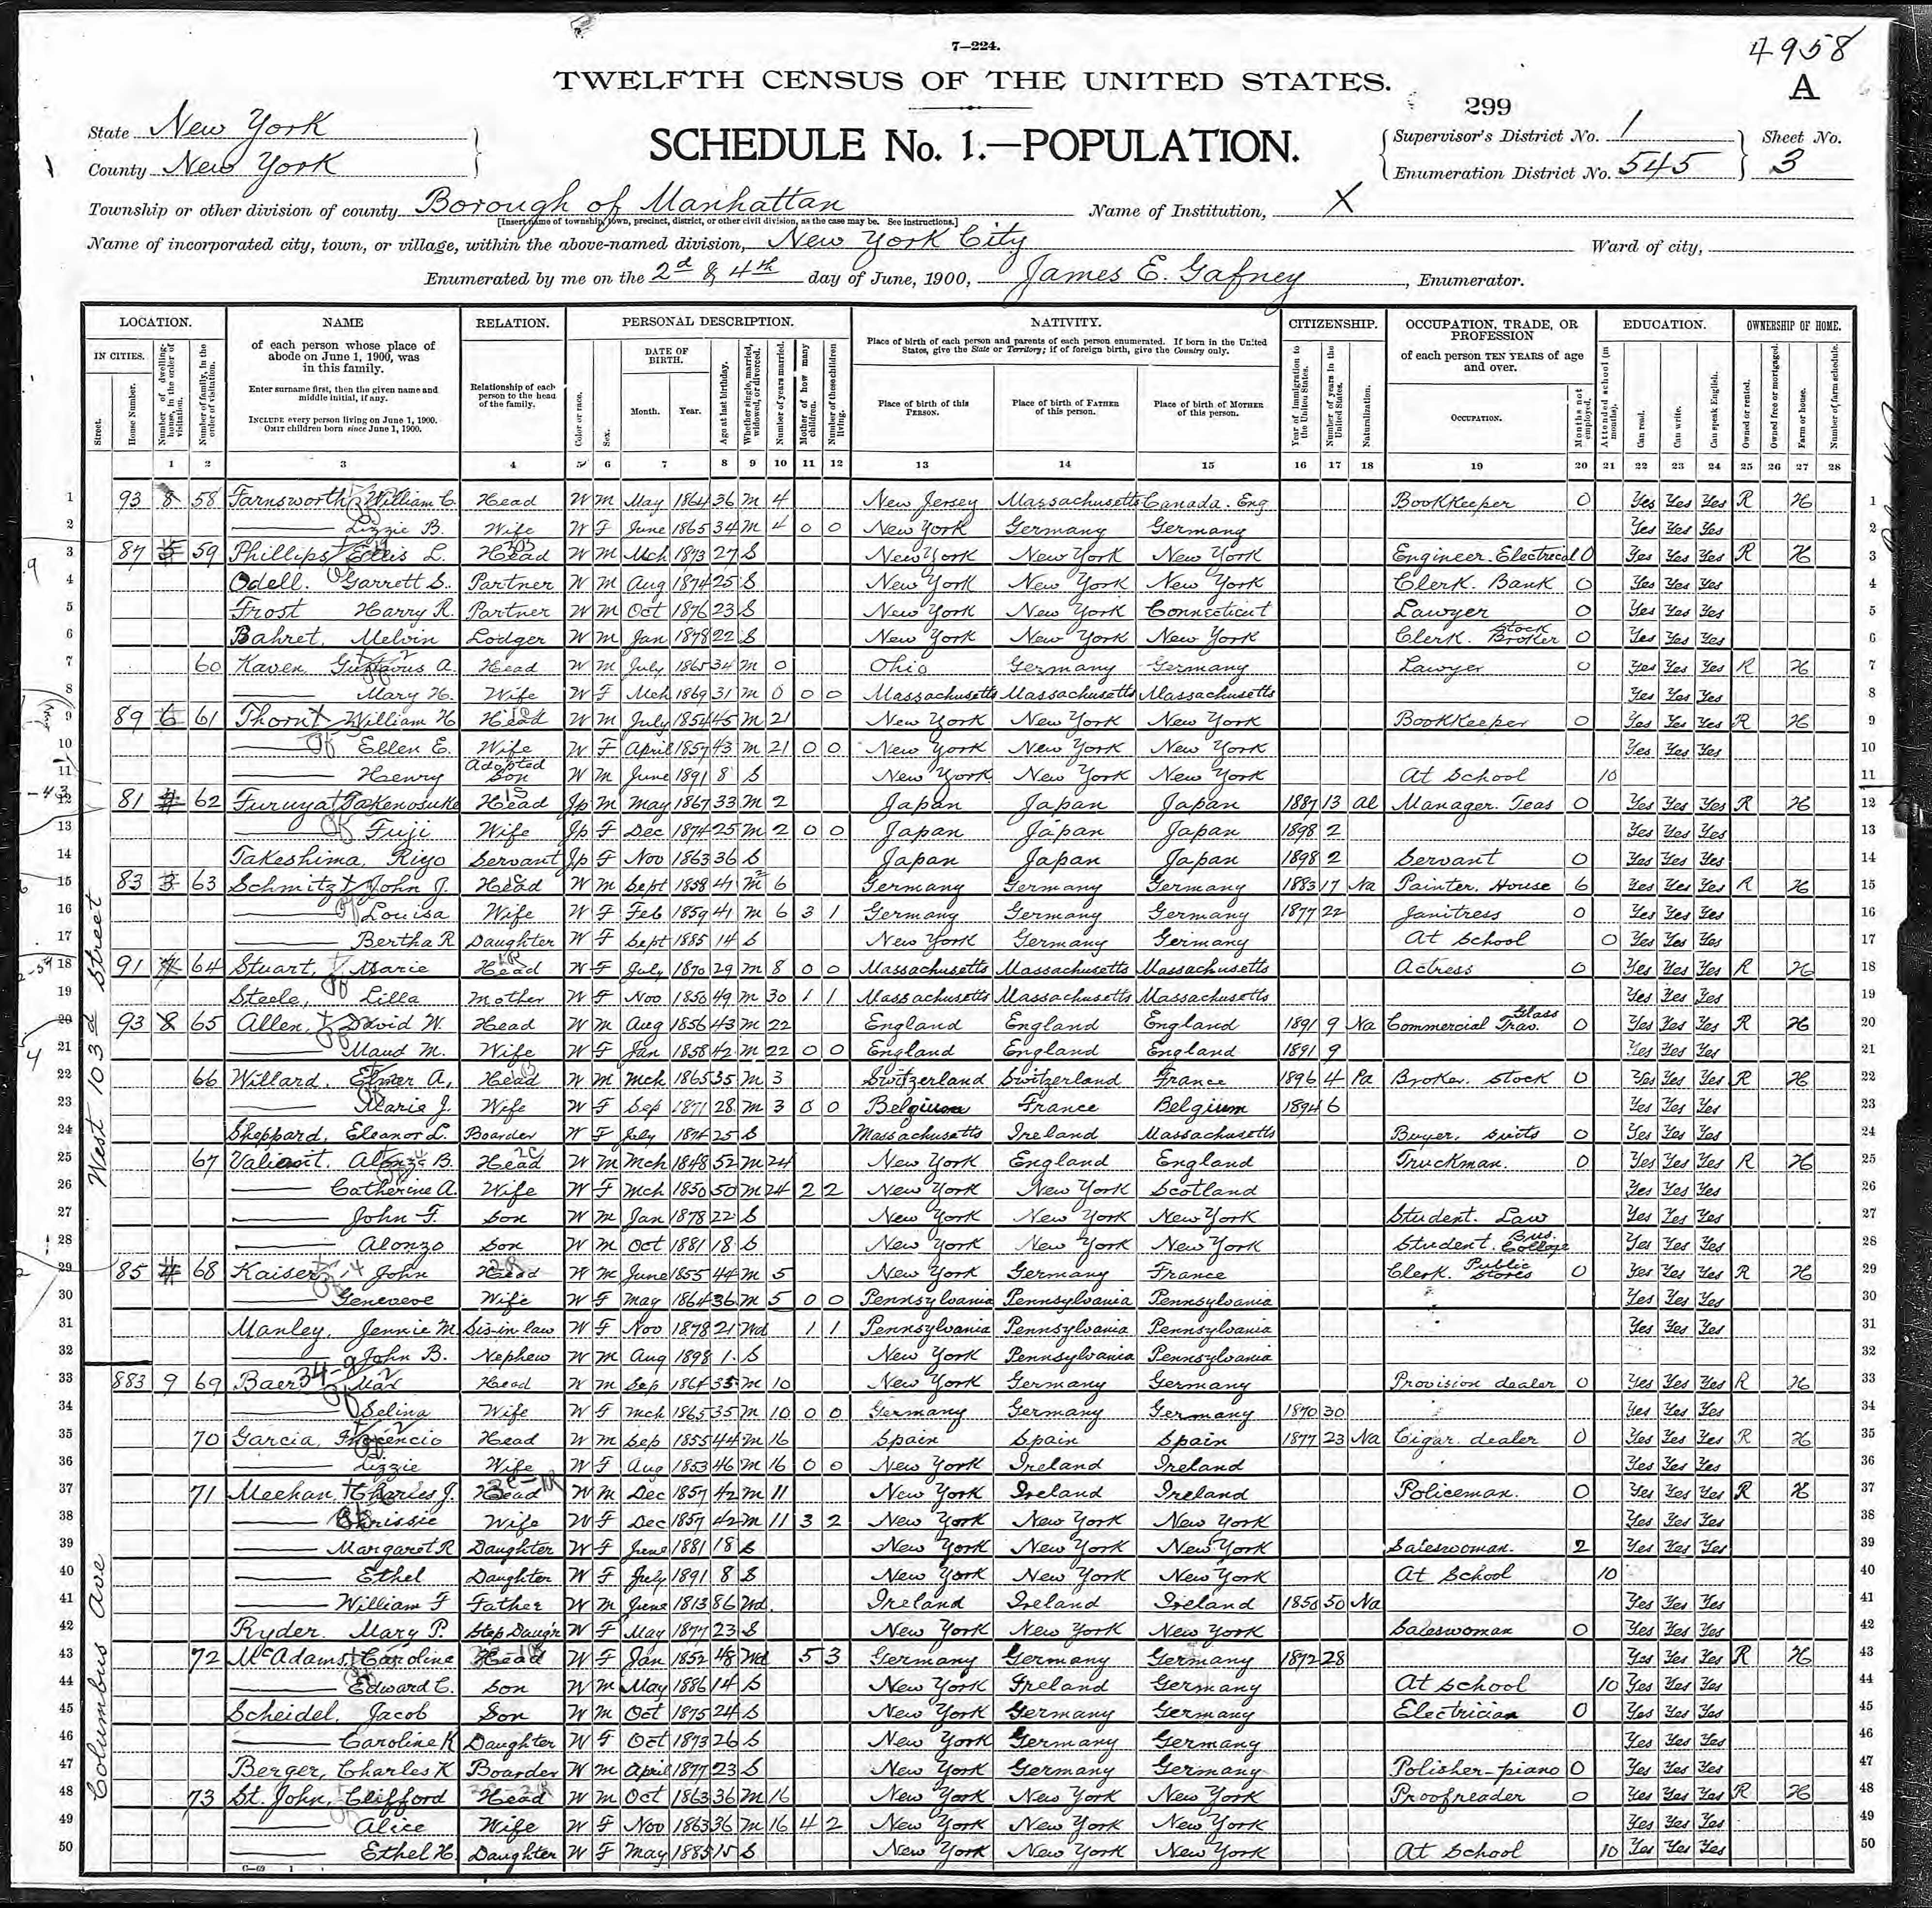 7—224.
4958
TWELFTH CENSUS OF THE UNITED STATES.
A
299
State New York
SCHEDULE No. 1.—POPULATION.
Supervisor's District No. 1
Sheet No.
County New York
Enumeration District No. 545
3
Township or other division of county Borough of Manhattan
Name of Institution, X
[Insert name of township, town, precinct, district, or other civil division, as the case may be. See instructions.]
Name of incorporated city, town, or village, within the above-named division, New York City
Ward of city,
Enumerated by me on the 2d & 4th day of June, 1900, James E. Gafney, Enumerator.
LOCATION. NAME RELATION. PERSONAL DESCRIPTION. NATIVITY. CITIZENSHIP. OCCUPATION, TRADE, OR PROFESSION EDUCATION. OWNERSHIP OF HOME.
IN CITIES. Street. House Number. Number of dwelling-house, in the order of visitation. Number of family, in the order of visitation.
of each person whose place of abode on June 1, 1900, was in this family.
Enter surname first, then the given name and middle initial, if any.
INCLUDE every person living on June 1, 1900. OMIT children born since June 1, 1900.
Relationship of each person to the head of the family.
Color or race. Sex. DATE OF BIRTH. Month. Year. Age at last birthday. Whether single, married, widowed, or divorced. Number of years married. Mother of how many children. Number of these children living.
Place of birth of each person and parents of each person enumerated. If born in the United States, give the State or Territory; if of foreign birth, give the Country only.
Place of birth of this PERSON. Place of birth of FATHER of this person. Place of birth of MOTHER of this person.
Year of immigration to the United States. Number of years in the United States. Naturalization.
of each person TEN YEARS of age and over.
OCCUPATION. Months not employed.
Attended school (in months). Can read. Can write. Can speak English.
Owned or rented. Owned free or mortgaged. Farm or house. Number of farm schedule.
1 2 3 4 5 6 7 8 9 10 11 12 13 14 15 16 17 18 19 20 21 22 23 24 25 26 27 28
West 103d Street
1 93 8 58 Farnsworth William C. Head W M May 1864 36 M 4 New Jersey Massachusetts Canada. Eng Bookkeeper 0 Yes Yes Yes R H 1
2 Lizzie B. Wife W F June 1865 34 M 4 0 0 New York Germany Germany Yes Yes Yes 2
3 87 59 Phillips Ellis L. Head W M Mch 1873 27 S New York New York New York Engineer. Electrical 0 Yes Yes Yes R H 3
4 Odell. Garrett S. Partner W M Aug 1874 25 S New York New York New York Clerk. Bank 0 Yes Yes Yes 4
5 Frost Harry R. Partner W M Oct 1876 23 S New York New York Connecticut Lawyer 0 Yes Yes Yes 5
6 Bahret, Melvin Lodger W M Jan 1878 22 S New York New York New York Clerk. Stock Broker 0 Yes Yes Yes 6
7 60 Kaven Gustavus A. Head W M July 1865 34 M 0 Ohio Germany Germany Lawyer 0 Yes Yes Yes R H 7
8 Mary H. Wife W F Mch 1869 31 M 0 0 0 Massachusetts Massachusetts Massachusetts Yes Yes Yes 8
9 89 6 61 Thorn William H Head W M July 1854 45 M 21 New York New York New York Bookkeeper 0 Yes Yes Yes R H 9
10 Ellen E. Wife W F April 1857 43 M 21 0 0 New York New York New York Yes Yes Yes 10
11 Henry Adopted Son W M June 1891 8 S New York New York New York At School 10 11
12 81 62 Furuya Takenosuke Head Jp M May 1867 33 M 2 Japan Japan Japan 1887 13 Al Manager. Teas 0 Yes Yes Yes R H 12
13 Fuji Wife Jp F Dec 1874 25 M 2 0 0 Japan Japan Japan 1898 2 Yes Yes Yes 13
14 Takeshima, Riyo Servant Jp F Nov 1863 36 S Japan Japan Japan 1898 2 Servant 0 Yes Yes Yes 14
15 83 3 63 Schmitz John J. Head W M Sept 1858 41 M 6 Germany Germany Germany 1883 17 Na Painter. House 6 Yes Yes Yes R H 15
16 Louisa Wife W F Feb 1859 41 M 6 3 1 Germany Germany Germany 1877 22 Janitress 0 Yes Yes Yes 16
17 Bertha R Daughter W F Sept 1885 14 S New York Germany Germany At School 0 Yes Yes Yes 17
18 91 7 64 Stuart, Marie Head W F July 1870 29 M 8 0 0 Massachusetts Massachusetts Massachusetts Actress 0 Yes Yes Yes R H 18
19 Steele, Lilla Mother W F Nov 1850 49 M 30 1 1 Massachusetts Massachusetts Massachusetts Yes Yes Yes 19
20 93 8 65 Allen, David W. Head W M Aug 1856 43 M 22 England England England 1891 9 Na Commercial Trav. Glass 0 Yes Yes Yes R H 20
21 Maud M. Wife W F Jan 1858 42 M 22 0 0 England England England 1891 9 Yes Yes Yes 21
22 66 Willard. Elmer A, Head W M Mch 1865 35 M 3 Switzerland Switzerland France 1896 4 Pa Broker. Stock 0 Yes Yes Yes R H 22
23 Marie J. Wife W F Sep 1871 28 M 3 0 0 Belgium France Belgium 1894 6 Yes Yes Yes 23
24 Sheppard, Eleanor L. Boarder W F July 1874 25 S Massachusetts Ireland Massachusetts Buyer, Suits 0 Yes Yes Yes 24
25 67 Alonzo B. Head W M Mch 1848 52 M 24 New York England England Truckman. 0 Yes Yes Yes R H 25
26 Catherine A. Wife W F Mch 1850 50 M 24 2 2 New York New York Scotland Yes Yes Yes 26
27 John F. Son W M Jan 1878 22 S New York New York New York Student. Law Yes Yes Yes 27
28 Alonzo Son W M Oct 1881 18 S New York New York New York Student. Bus. College Yes Yes Yes 28
29 85 68 Kaiser John Head W M June 1855 44 M 5 New York Germany France Clerk. Public Stores 0 Yes Yes Yes R H 29
30 Geneveve Wife W F May 1864 36 M 5 0 0 Pennsylvania Pennsylvania Pennsylvania Yes Yes Yes 30
31 Manley, Jennie M. Sis-in law W F Nov 1878 21 Wd 1 1 Pennsylvania Pennsylvania Pennsylvania Yes Yes Yes 31
32 John B. Nephew W M Aug 1898 1 S New York Pennsylvania Pennsylvania 32
Columbus Ave
33 883 9 69 Baer Max Head W M Sep 1864 35 M 10 New York Germany Germany Provision dealer 0 Yes Yes Yes R H 33
34 Selina Wife W F Mch 1865 35 M 10 0 0 Germany Germany Germany 1870 30 Yes Yes Yes 34
35 70 Garcia, Head W M Sep 1855 44 M 16 Spain Spain Spain 1877 23 Na Cigar. dealer 0 Yes Yes Yes R H 35
36 Lizzie Wife W F Aug 1853 46 M 16 0 0 New York Ireland Ireland Yes Yes Yes 36
37 71 Meehan, Charles J. Head W M Dec 1857 42 M 11 New York Ireland Ireland Policeman. 0 Yes Yes Yes R H 37
38 Chrissie Wife W F Dec 1857 42 M 11 3 2 New York New York New York Yes Yes Yes 38
39 Margaret R Daughter W F June 1881 18 S New York New York New York Saleswoman. 2 Yes Yes Yes 39
40 Ethel Daughter W F July 1891 8 S New York New York New York At School 10 40
41 William F Father W M June 1813 86 Wd. Ireland Ireland Ireland 1850 50 Na Yes Yes Yes 41
42 Ryder. Mary P. Step Daug'r W F May 1877 23 S New York New York New York Saleswoman 0 Yes Yes Yes 42
43 72 McAdams, Caroline Head W F Jan 1852 48 Wd 5 3 Germany Germany Germany 1872 28 Yes Yes Yes R H 43
44 Edward C. Son W M May 1886 14 S New York Ireland Germany At School 10 Yes Yes Yes 44
45 Scheidel, Jacob Son W M Oct 1875 24 S New York Germany Germany Electrician 0 Yes Yes Yes 45
46 Caroline K Daughter W F Oct 1873 26 S New York Germany Germany Yes Yes Yes 46
47 Berger, Charles K Boarder W M April 1877 23 S New York Germany Germany Polisher-piano 0 Yes Yes Yes 47
48 73 St. John, Clifford Head W M Oct 1863 36 M 16 New York New York New York Proofreader 0 Yes Yes Yes R H 48
49 Alice Wife W F Nov 1863 36 M 16 4 2 New York New York New York Yes Yes Yes 49
50 Ethel H. Daughter W F May 1885 15 S New York New York New York At School 10 Yes Yes Yes 50